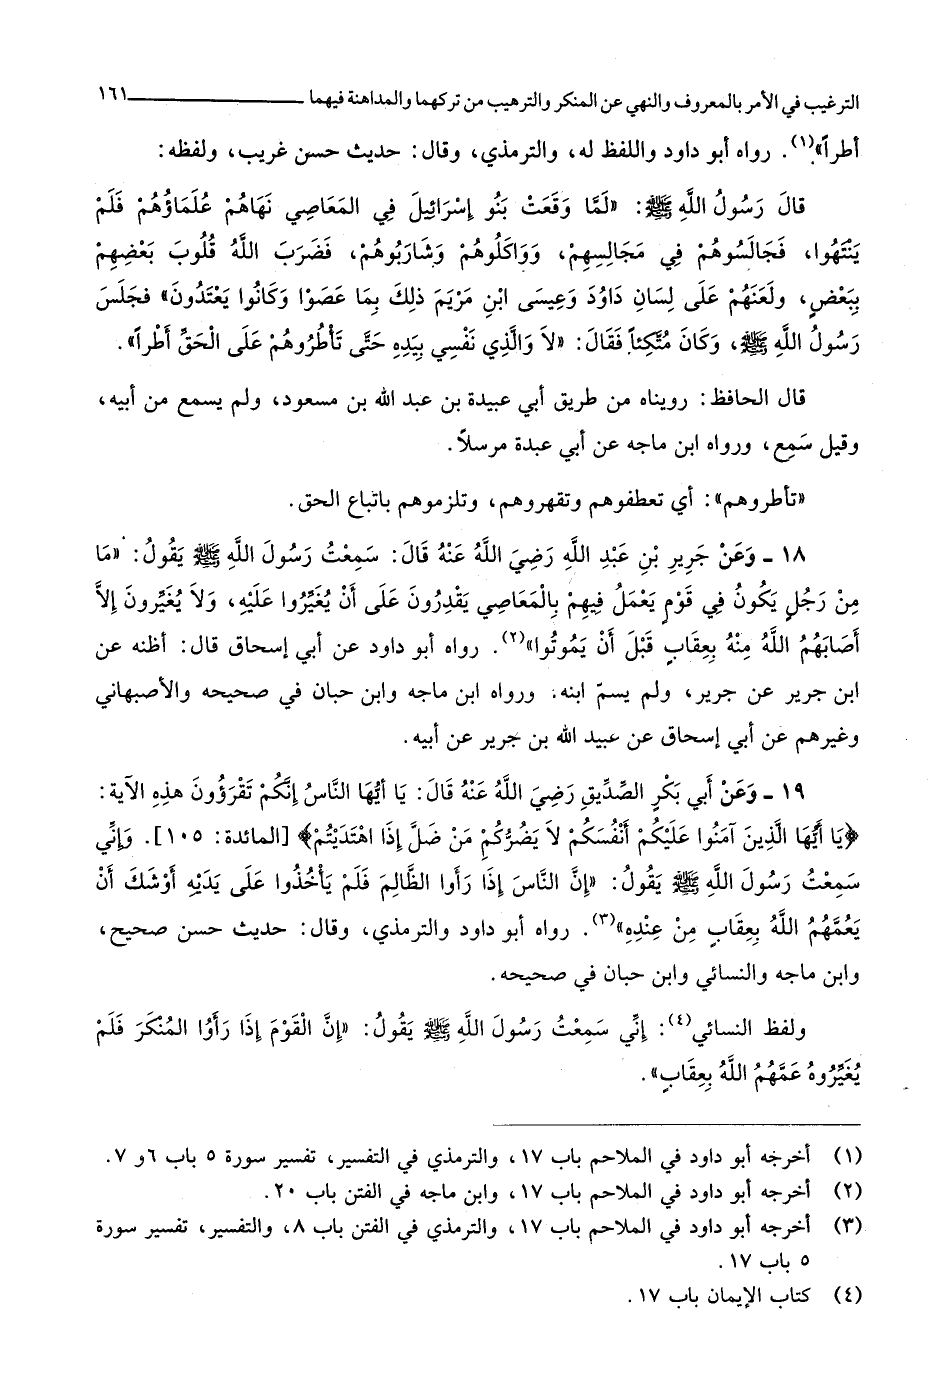 الترغيب في الأمر بالمعروف والنهي عن المنكر والترهيب من تركهما والمداهنة فيهما ١٦١
أطراً»(١). رواه أبو داود واللفظ له، والترمذي، وقال: حديث حسن غريب، ولفظه:
قالَ رَسُولُ اللَّهِ ﷺ: «لَمَّا وَقَعَتْ بَنُو إِسْرَائِيلَ فِي المَعَاصِي نَهَاهُمْ عُلَمَاؤُهُمْ فَلَمْ
يَنْتَهُوا، فَجَالَسُوهُمْ فِي مَجَالِسِهِمْ، وَوَاكَلُوهُمْ وَشَارَبُوهُمْ، فَضَرَبَ اللَّهُ قُلُوبَ بَعْضِهِمْ
بِبَعْضٍ، ولَعَنَهُمْ عَلَى لِسَانِ دَاوُدَ وَعِيسَى ابْنِ مَرْيَمَ ذلِكَ بِمَا عَصَوْا وَكَانُوا يَعْتَدُونَ» فَجَلَسَ
رَسُولُ اللَّهِ ﷺ، وَكَانَ مُتَّكِئاً فَقَالَ: «لاَ وَالَّذِي نَفْسِي بِيَدِهِ حَتَّى تَأْطُرُوهُمْ عَلَى الْحَقِّ أَطْراً».
قال الحافظ: رويناه من طريق أبي عبيدة بن عبد الله بن مسعود، ولم يسمع من أبيه،
وقيل سَمِع، ورواه ابن ماجه عن أبي عبدة مرسلاً.
«تأطروهم»: أي تعطفوهم وتقهروهم، وتلزموهم باتباع الحق.
١٨ ـ وَعَنْ جَرِيرِ بْنِ عَبْدِ اللَّهِ رَضِيَ اللَّهُ عَنْهُ قَالَ: سَمِعْتُ رَسُولَ اللَّهِ ﷺ يَقُولُ: «مَا
مِنْ رَجُلٍ يَكُونُ فِي قَوْمٍ يَعْمَلُ فِيهِمْ بِالْمَعَاصِي يَقْدِرُونَ عَلَى أَنْ يُغَيِّرُوا عَلَيْهِ، وَلاَ يُغَيِّرونَ إِلاَّ
أَصَابَهُمُ اللَّهُ مِنْهُ بِعِقَابٍ قَبْلَ أَنْ يَمُوتُوا»(٢). رواه أبو داود عن أبي إسحاق قال: أظنه عن
ابن جرير عن جرير، ولم يسمّ ابنه. ورواه ابن ماجه وابن حبان في صحيحه والأصبهاني
وغيرهم عن أبي إسحاق عن عبيد الله بن جرير عن أبيه.
١٩ ـ وَعَنْ أَبي بَكْرٍ الصِّدِّيقِ رَضِيَ اللَّهُ عَنْهُ قَالَ: يَا أيُّهَا النَّاسُ إِنَّكُمْ تَقْرَؤُونَ هذِهِ الآيةَ:
﴿يَا أَيُّهَا الَّذِينَ آمَنُوا عَلَيْكُمْ أَنْفُسَكُمْ لاَ يَضُرُّكُمْ مَنْ ضَلَّ إِذَا اهْتَدَيْتُمْ﴾ [المائدة: ١٠٥]. وَإِنِّي
سَمِعْتُ رَسُولَ اللَّهِ ﷺ يَقُولُ: «إِنَّ النَّاسَ إِذَا رَأَوا الظَّالِمَ فَلَمْ يَأْخُذُوا عَلَى يَدَيْهِ أَوْشَكَ أَنْ
يَعُمَّهُمُ اللَّهُ بِعِقَابٍ مِنْ عِنْدِهِ»(٣). رواه أبو داود والترمذي، وقال: حديث حسن صحيح،
وابن ماجه والنسائي وابن حبان في صحيحه.
ولفظ النسائي(٤): إِنِّي سَمِعْتُ رَسُولَ اللَّهِ ﷺ يَقُولُ: «إِنَّ الْقَوْمَ إِذَا رَأَوُا المُنْكَرَ فَلَمْ
يُغَيِّرُوهُ عَمَّهُمُ اللَّهُ بِعِقَابٍ».
(١) أخرجه أبو داود في الملاحم باب ١٧، والترمذي في التفسير، تفسير سورة ٥ باب ٦ و ٧.
(٢) أخرجه أبو داود في الملاحم باب ١٧، وابن ماجه في الفتن باب ٢٠.
(٣) أخرجه أبو داود في الملاحم باب ١٧، والترمذي في الفتن باب ٨، والتفسير، تفسير سورة
٥ باب ١٧.
(٤) كتاب الإيمان باب ١٧.